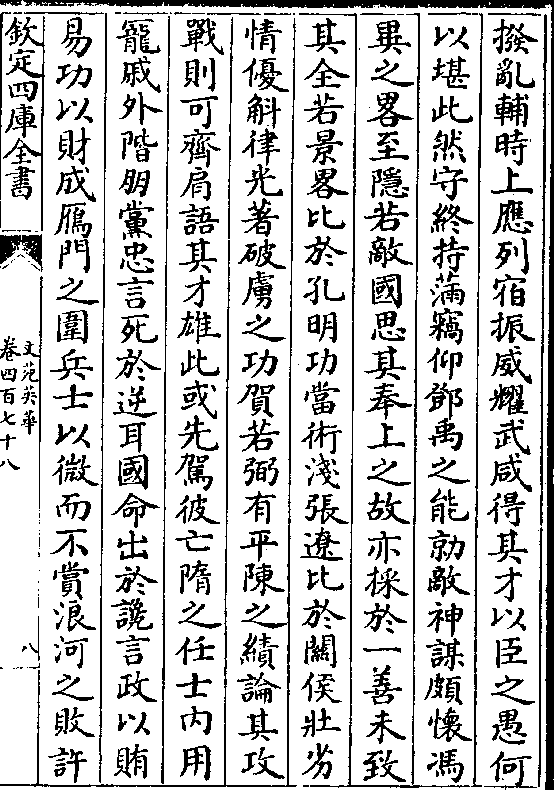 撥亂輔時上應列宿振威耀武咸得其才以臣之愚何
以堪此然守終持滿竊仰鄧禹之能勍敵神謀頗懷馮
異之畧至隱若敵國思其奉上之故亦採於一善未致
其全若景畧比於孔明功當術淺張遼比於關侯壯劣
情優斛律光著破虜之功賀若弼有平陳之績論其攻
戰則可齊肩語其才雄此或先駕彼亡隋之任士內用
寵戚外階朋黨忠言死於逆耳國命出於讒言政以賄
易功以財成鴈門之圍兵士以微而不賞浪河之敗許
欽定四庫全書
文苑英華
卷四百七十八
八